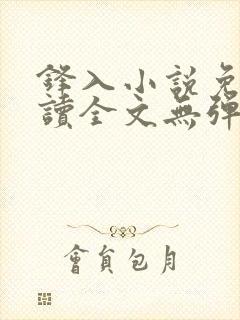 鋒入小說免
讀全文無彈
會員包月